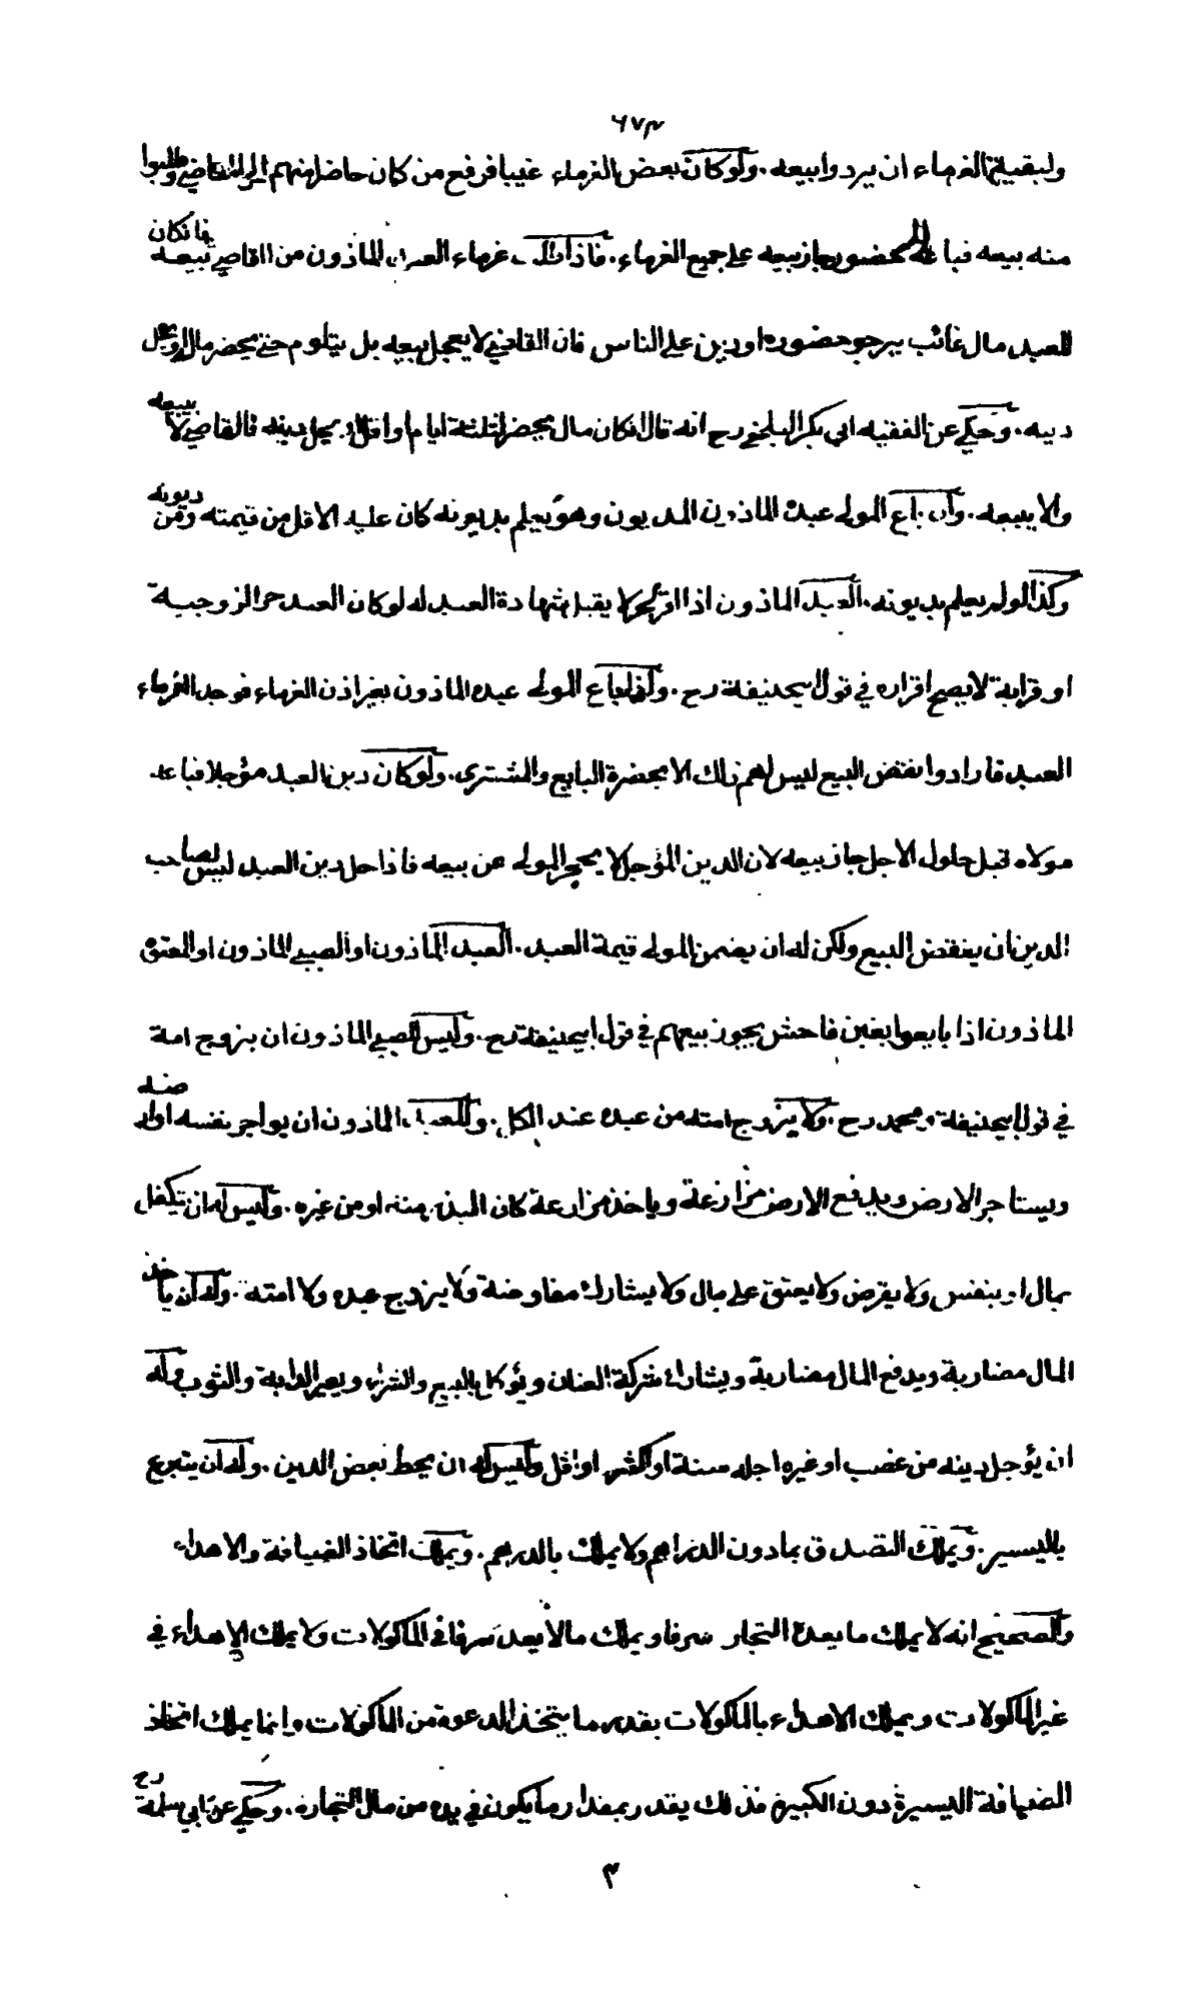 ٦٧٣
ولبقية الغرماء ان يردوا بيعه. ولو كان بعض الغرماء غيبا فرفع من كان حاضرا منهم الى القاضي وطلبوا
منه بيعه فباع للحضور جاز بيعه على جميع الغرماء. فاذا طلب غرماء العبد الماذون من القاضي بيعه فان كان
للعبد مال غائب يرجو حضوره او دين على الناس فان القاضي لا يعجل ببيعه بل يتلوم حتى يحضر مال او يحل
دينه. وحكي عن الفقيه ابي بكر البلخي رح انه قال ان كان مال يحضر لثلثة ايام او اقل او يحل دينه فالقاضي لا يبيعه
والا يبيعه. وان باع المولى عبده الماذون المديون وهو يعلم بديونه كان عليه الاقل من قيمته ومن ديونه
وكذا لو لم يعلم بديونه. العبد الماذون اذا اقر لحر لا يقبل شهادة العبد له لو كان العبد حرا لزوجية
او قرابة لا يصح اقراره في قول ابيحنيفة رح. واذا باع المولى عبده الماذون بغير اذن الغرماء فوجد الغرماء
العبد فارادوا نقض البيع ليس لهم ذلك الا بحضرة البايع والمشتري. ولو كان دين العبد مؤجلا فباعه
مولاه قبل حلول الاجل جاز بيعه لان الدين المؤجل لا يحجر المولى عن بيعه فاذا حل دين العبد ليس لصاحب
الدين ان ينقض البيع ولكن له ان يضمن المولى قيمة العبد. العبد الماذون او الصبي الماذون او المعتوه
الماذون اذا بايعوا بغبن فاحش يجوز بيعهم في قول ابيحنيفة رح. وليس للصبي الماذون ان يزوج امة
في قول ابيحنيفة ومحمد رح. ولا يزوج امته من عبده عند الكل. وللعبد الماذون ان يواجر نفسه ارضه
ويستاجر الارض ويدفع الارض مزارعة وياخذ مزارعة كان البذر منه او من غيره. وليس له ان يتكفل
بمال او بنفس ولا يقرض ولا يعتق على مال ولا يشارك مفاوضة ولا يزوج عبده ولا امته. وله ان ياخذ
المال مضاربة ويدفع المال مضاربة ويشارك شركة العنان ويؤكل بالبيع والشراء ويعير الدابة والثوب وله
ان يؤجل دينه من غصب او غيره اجله سنة او اكثر او اقل وليس له ان يحط بعض الدين. وله ان يتبرع
باليسير. ويملك التصدق بما دون الدراهم ولا يملك بالدرهم. ويملك اتخاذ الضيافة والاهداء
والصحيح انه لا يملك ما يعده التجار سرفا ويملك ما لا يعد سرفا في الماكولات ولا يملك الاهداء في
غير الماكولات ويملك الاهداء بالماكولات بقدر ما يتخذ الدعوة من الماكولات وانما يملك اتخاذ
الضيافة اليسيرة دون الكبيرة فذلك يقدر بمقدار ما يكون في يده من مال التجارة. وحكي عن ابي سلمة رح
٣